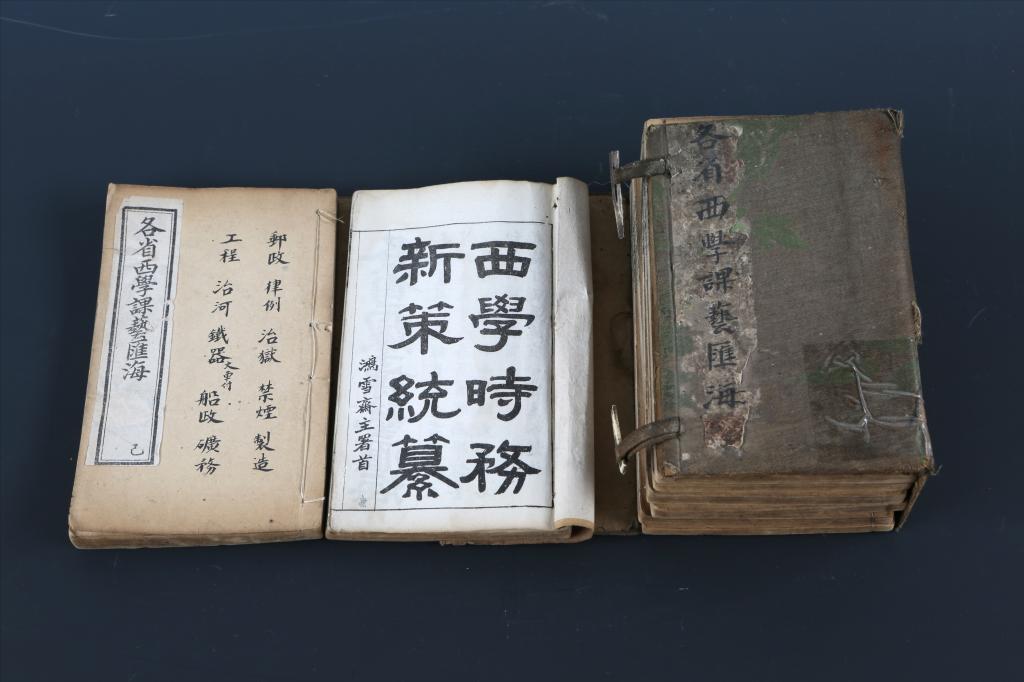 各省西學課藝匯海
己
郵政 律例 治獄 禁煙 製造
工程 治河 鐵器 船政 礦務
西學時務
新策統纂
鴻雪齋主署首
各省西學課藝匯海